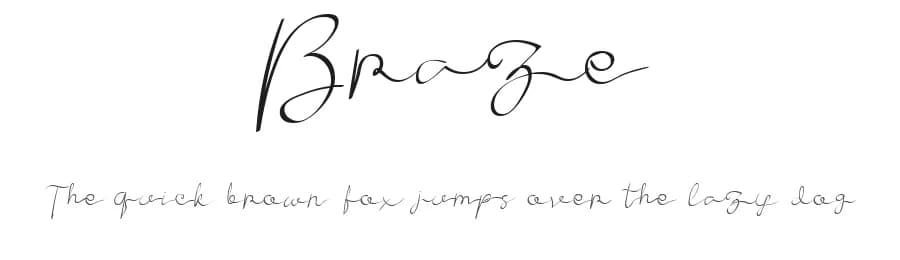 Braze
The quick brown fox jumps over the lazy dog